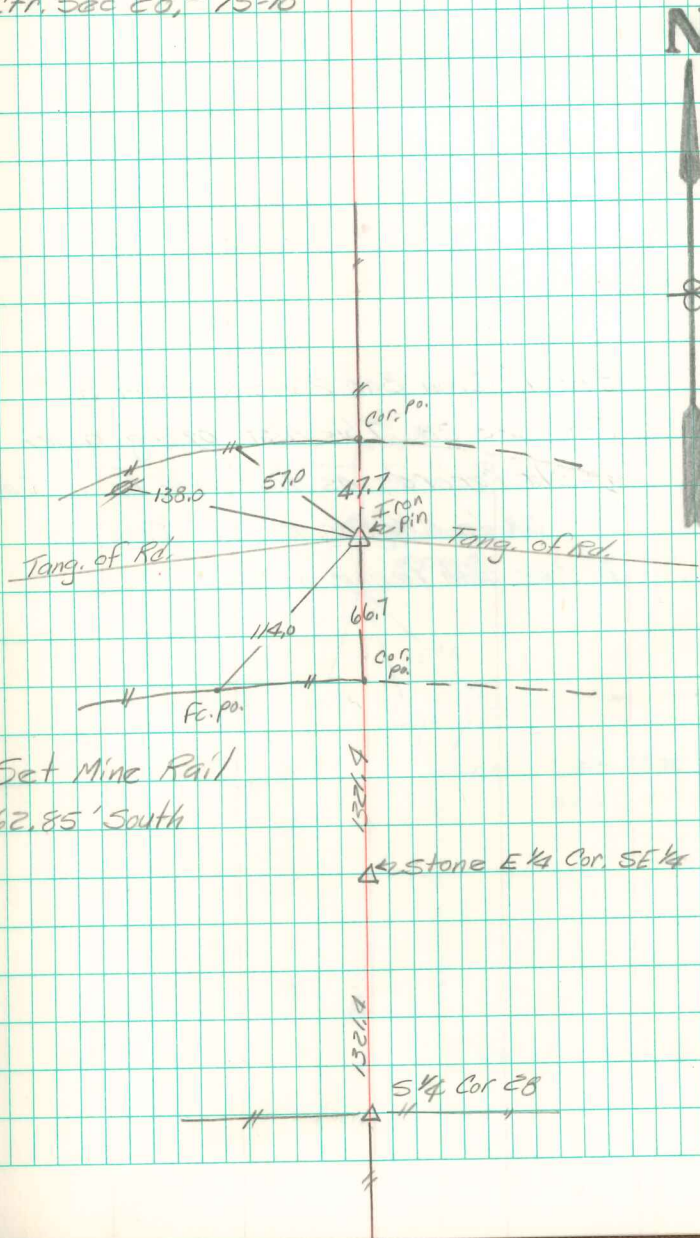 Sec 28, 75-10
N
Cor. Po.
57.0
47.7
138.0
Iron
Pin
Tang. of Rd.
Tang. of Rd.
66.7
114.0
Cor.
po.
Fc. po.
Set Mine Rail
62.85' South
1321.4
Stone E 1/4 Cor. SE 1/4
1321.4
S 1/4 Cor 28